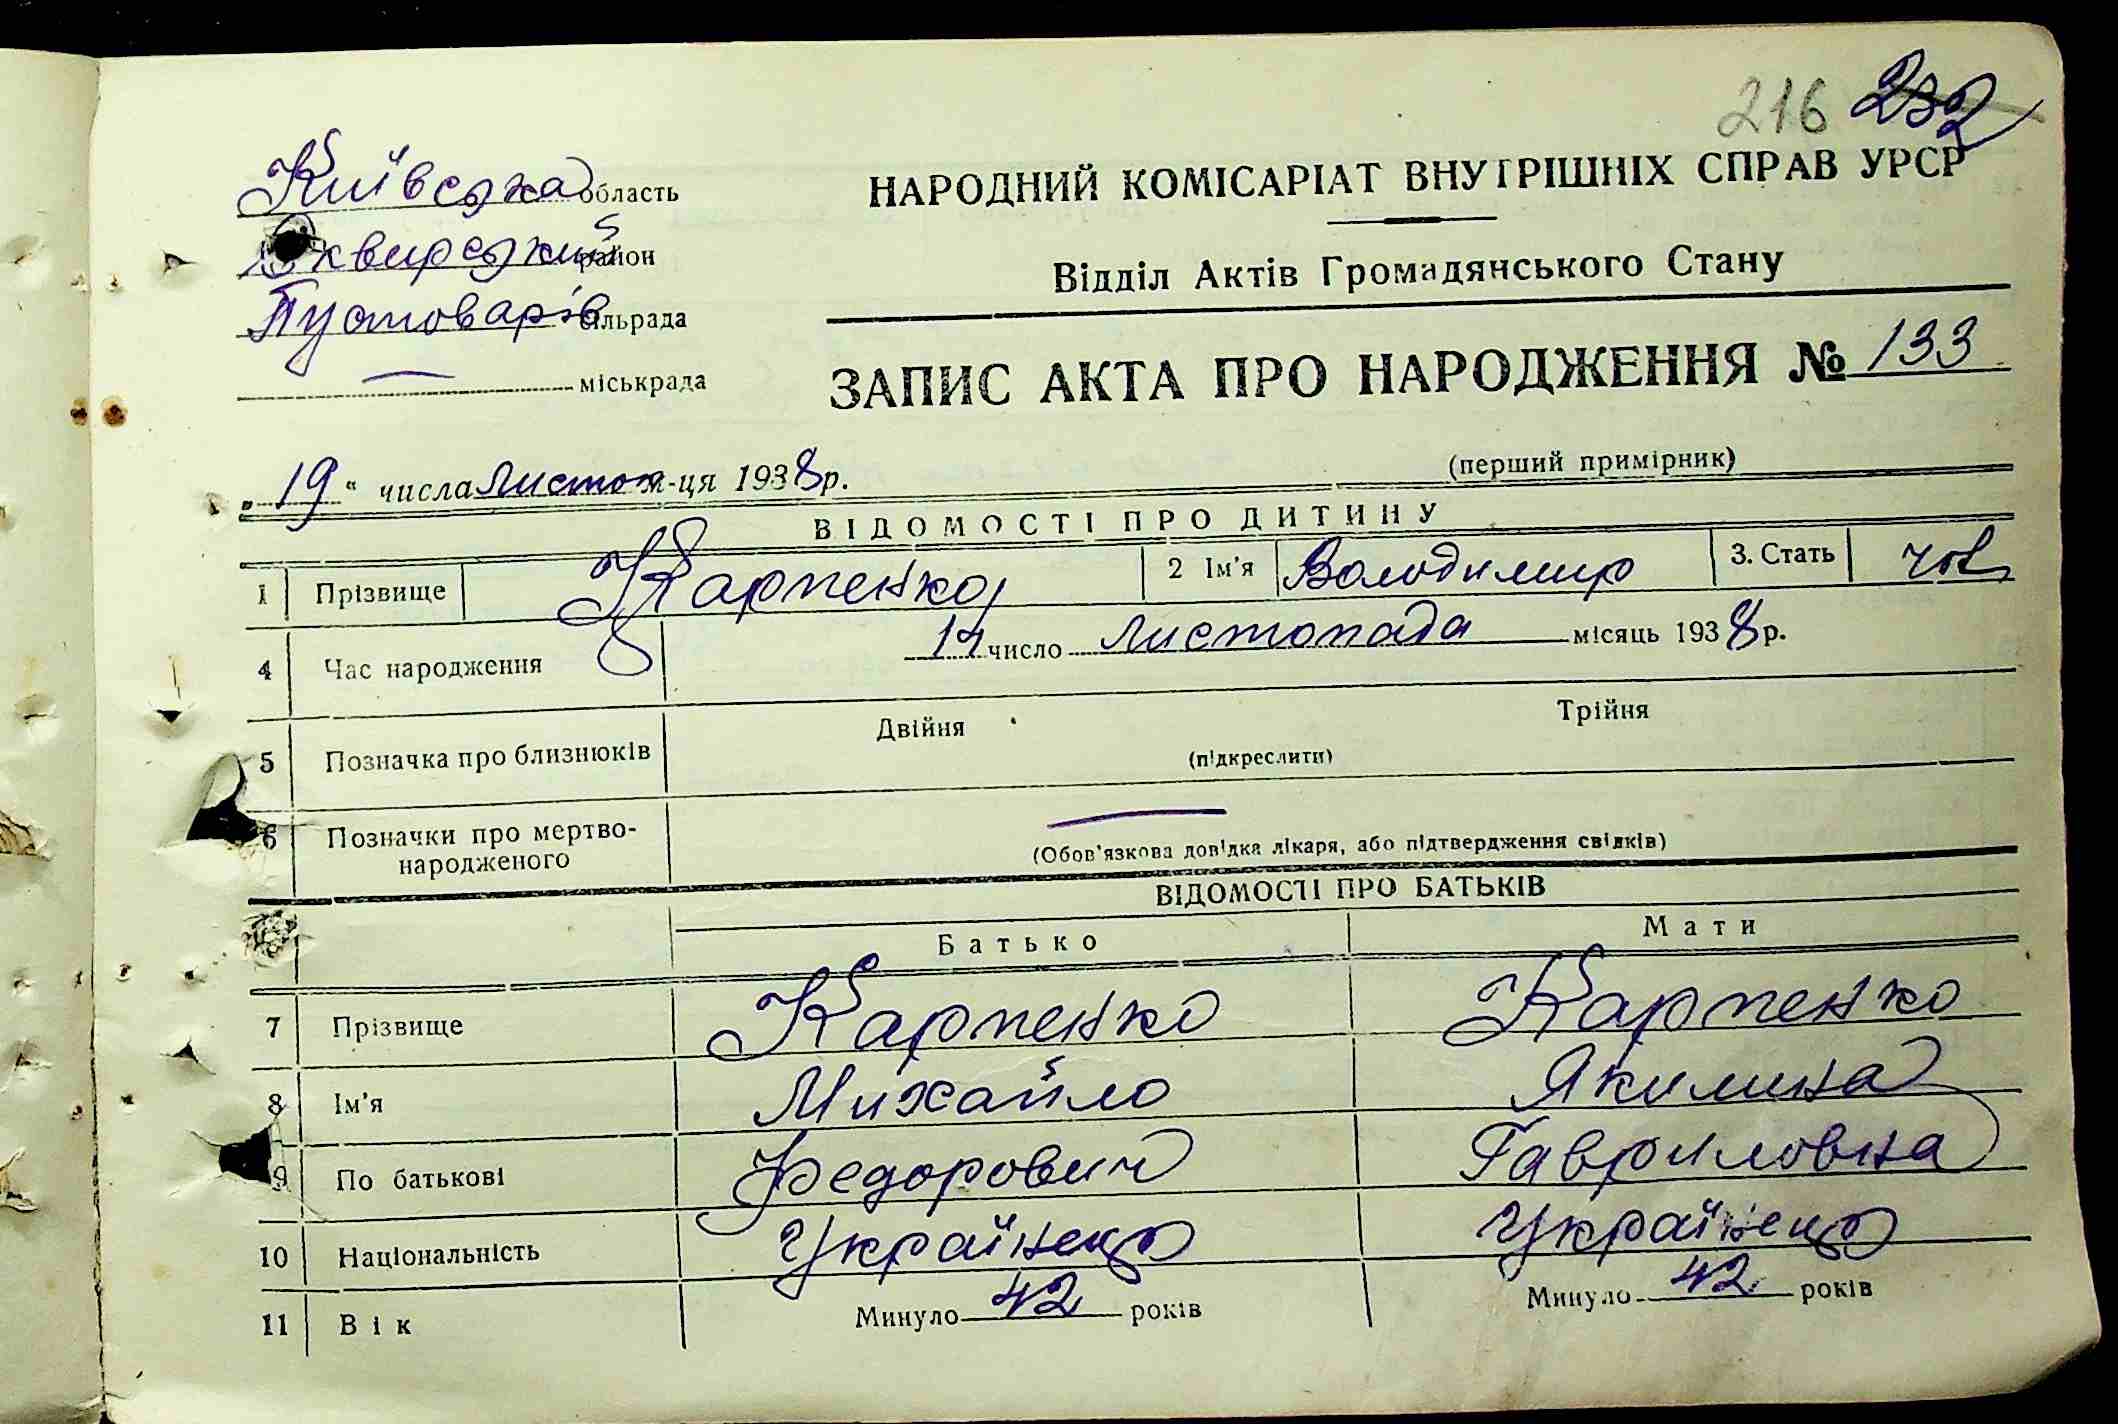 216 232
Київська область
Сквирський район
Пустоварів сільрада
міськрада
НАРОДНИЙ КОМІСАРІАТ ВНУТРІШНІХ СПРАВ УРСР
Відділ Актів Громадянського Стану
ЗАПИС АКТА ПРО НАРОДЖЕННЯ № 133
(перший примірник)
„19“ числа Листоп м-ця 1938 р.
ВІДОМОСТІ ПРО ДИТИНУ
1 Прізвище Карпенко 2 Ім'я Володимир 3. Стать чол
4 Час народження 14 число Листопада місяць 1938 р.
5 Позначка про близнюків Двійня Трійня
(підкреслити)
6 Позначки про мертво-
народженого
(Обов'язкова довідка лікаря, або підтвердження свідків)
ВІДОМОСТІ ПРО БАТЬКІВ
Батько Мати
7 Прізвище Карпенко Карпенко
8 Ім'я Михайло Якилина
9 По батькові Федорович Гавриловна
10 Національність Українець Українець
11 Вік Минуло 42 років Минуло 42 років